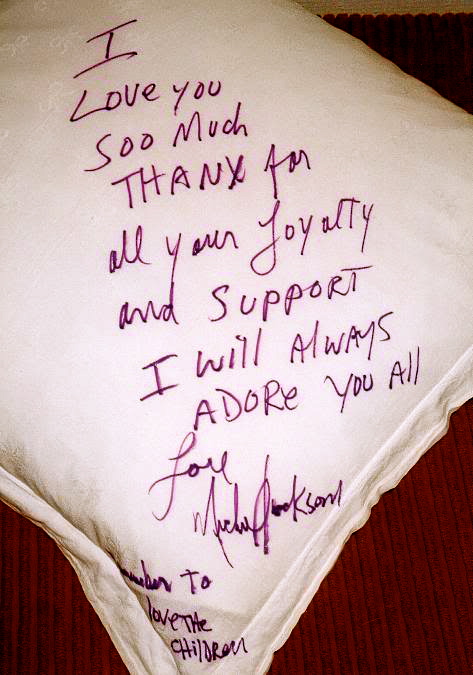 I
Love you
Soo Much
THANX for
all your Loyalty
and SUPPORT
I will AlWAYS
ADORe YOU All
Love
Michael Jackson
to
love THE
CHilDRen